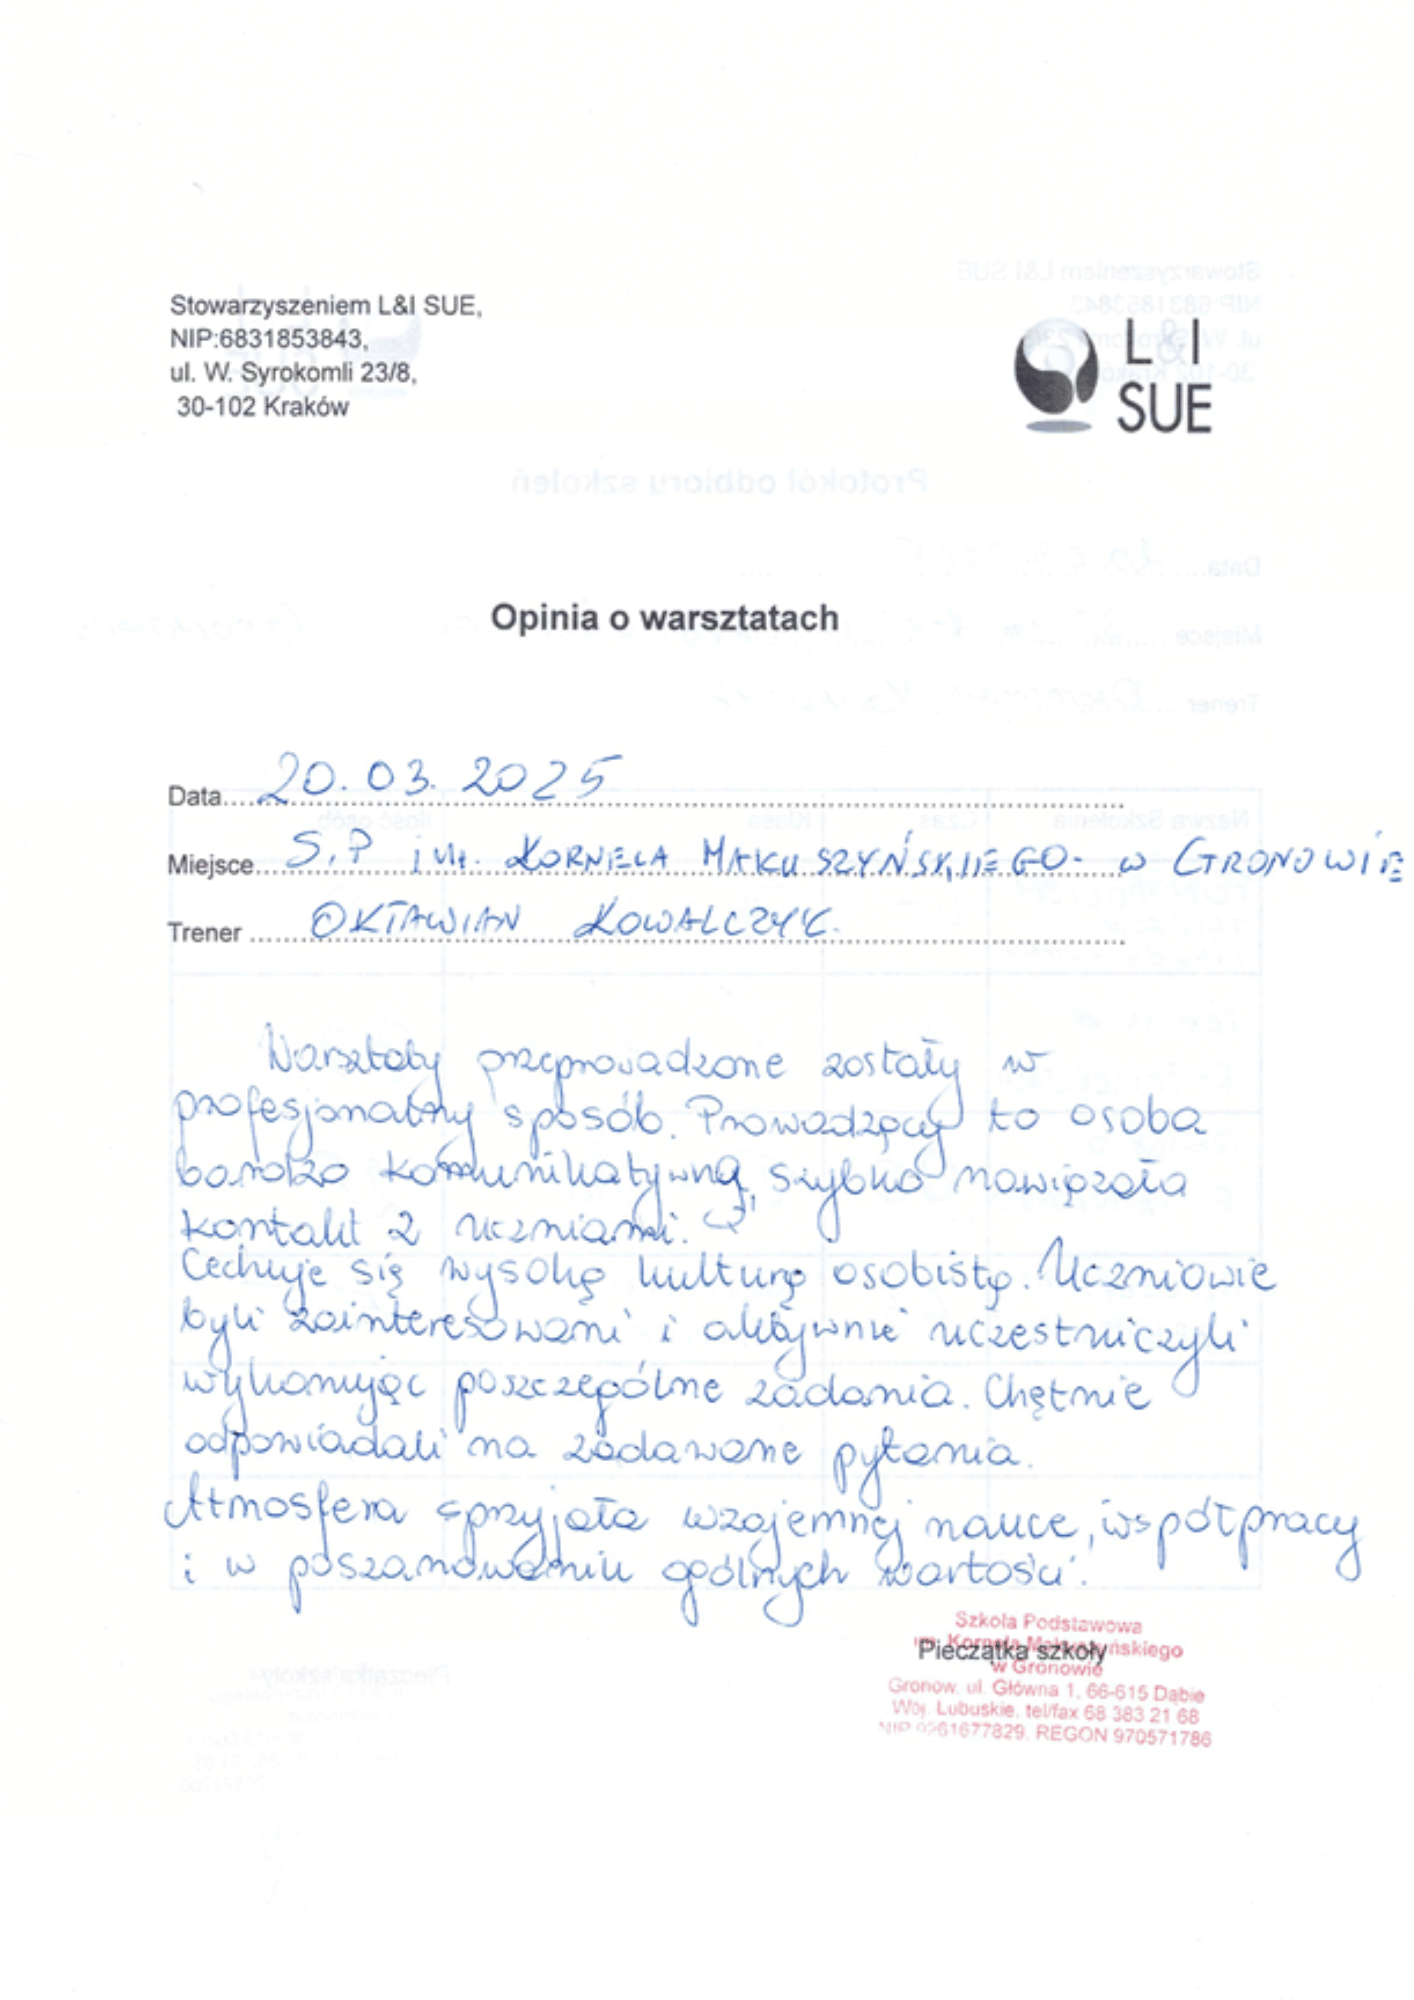 Stowarzyszeniem L&I SUE,
NIP:6831853843,
ul. W. Syrokomli 23/8,
30-102 Kraków
L&I
SUE
Opinia o warsztatach
Data 20.03.2025
Miejsce S.P im. KORNELA MAKUSZYŃSKIEGO- w GRONOWIE
Trener OKTAWIAN KOWALCZYK.
Warsztaty przeprowadzone zostały w
profesjonalny sposób. Prowadzący to osoba
bardzo komunikatywną, szybko nawiązała
kontakt z uczniami.
Cechuje się wysoką kulturą osobistą. Uczniowie
byli zainteresowani i aktywnie uczestniczyli
wykonując poszczególne zadania. Chętnie
odpowiadali na zadawane pytania.
Atmosfera sprzyjała wzajemnej nauce, współpracy
i w poszanowaniu ogólnych wartości.
Szkoła Podstawowa
im. Kornela Makuszyńskiego
Pieczątka szkoły
w Gronowie
Gronów, ul. Główna 1, 66-615 Dąbie
Woj. Lubuskie, tel/fax 68 383 21 68
NIP 9261677829, REGON 970571786